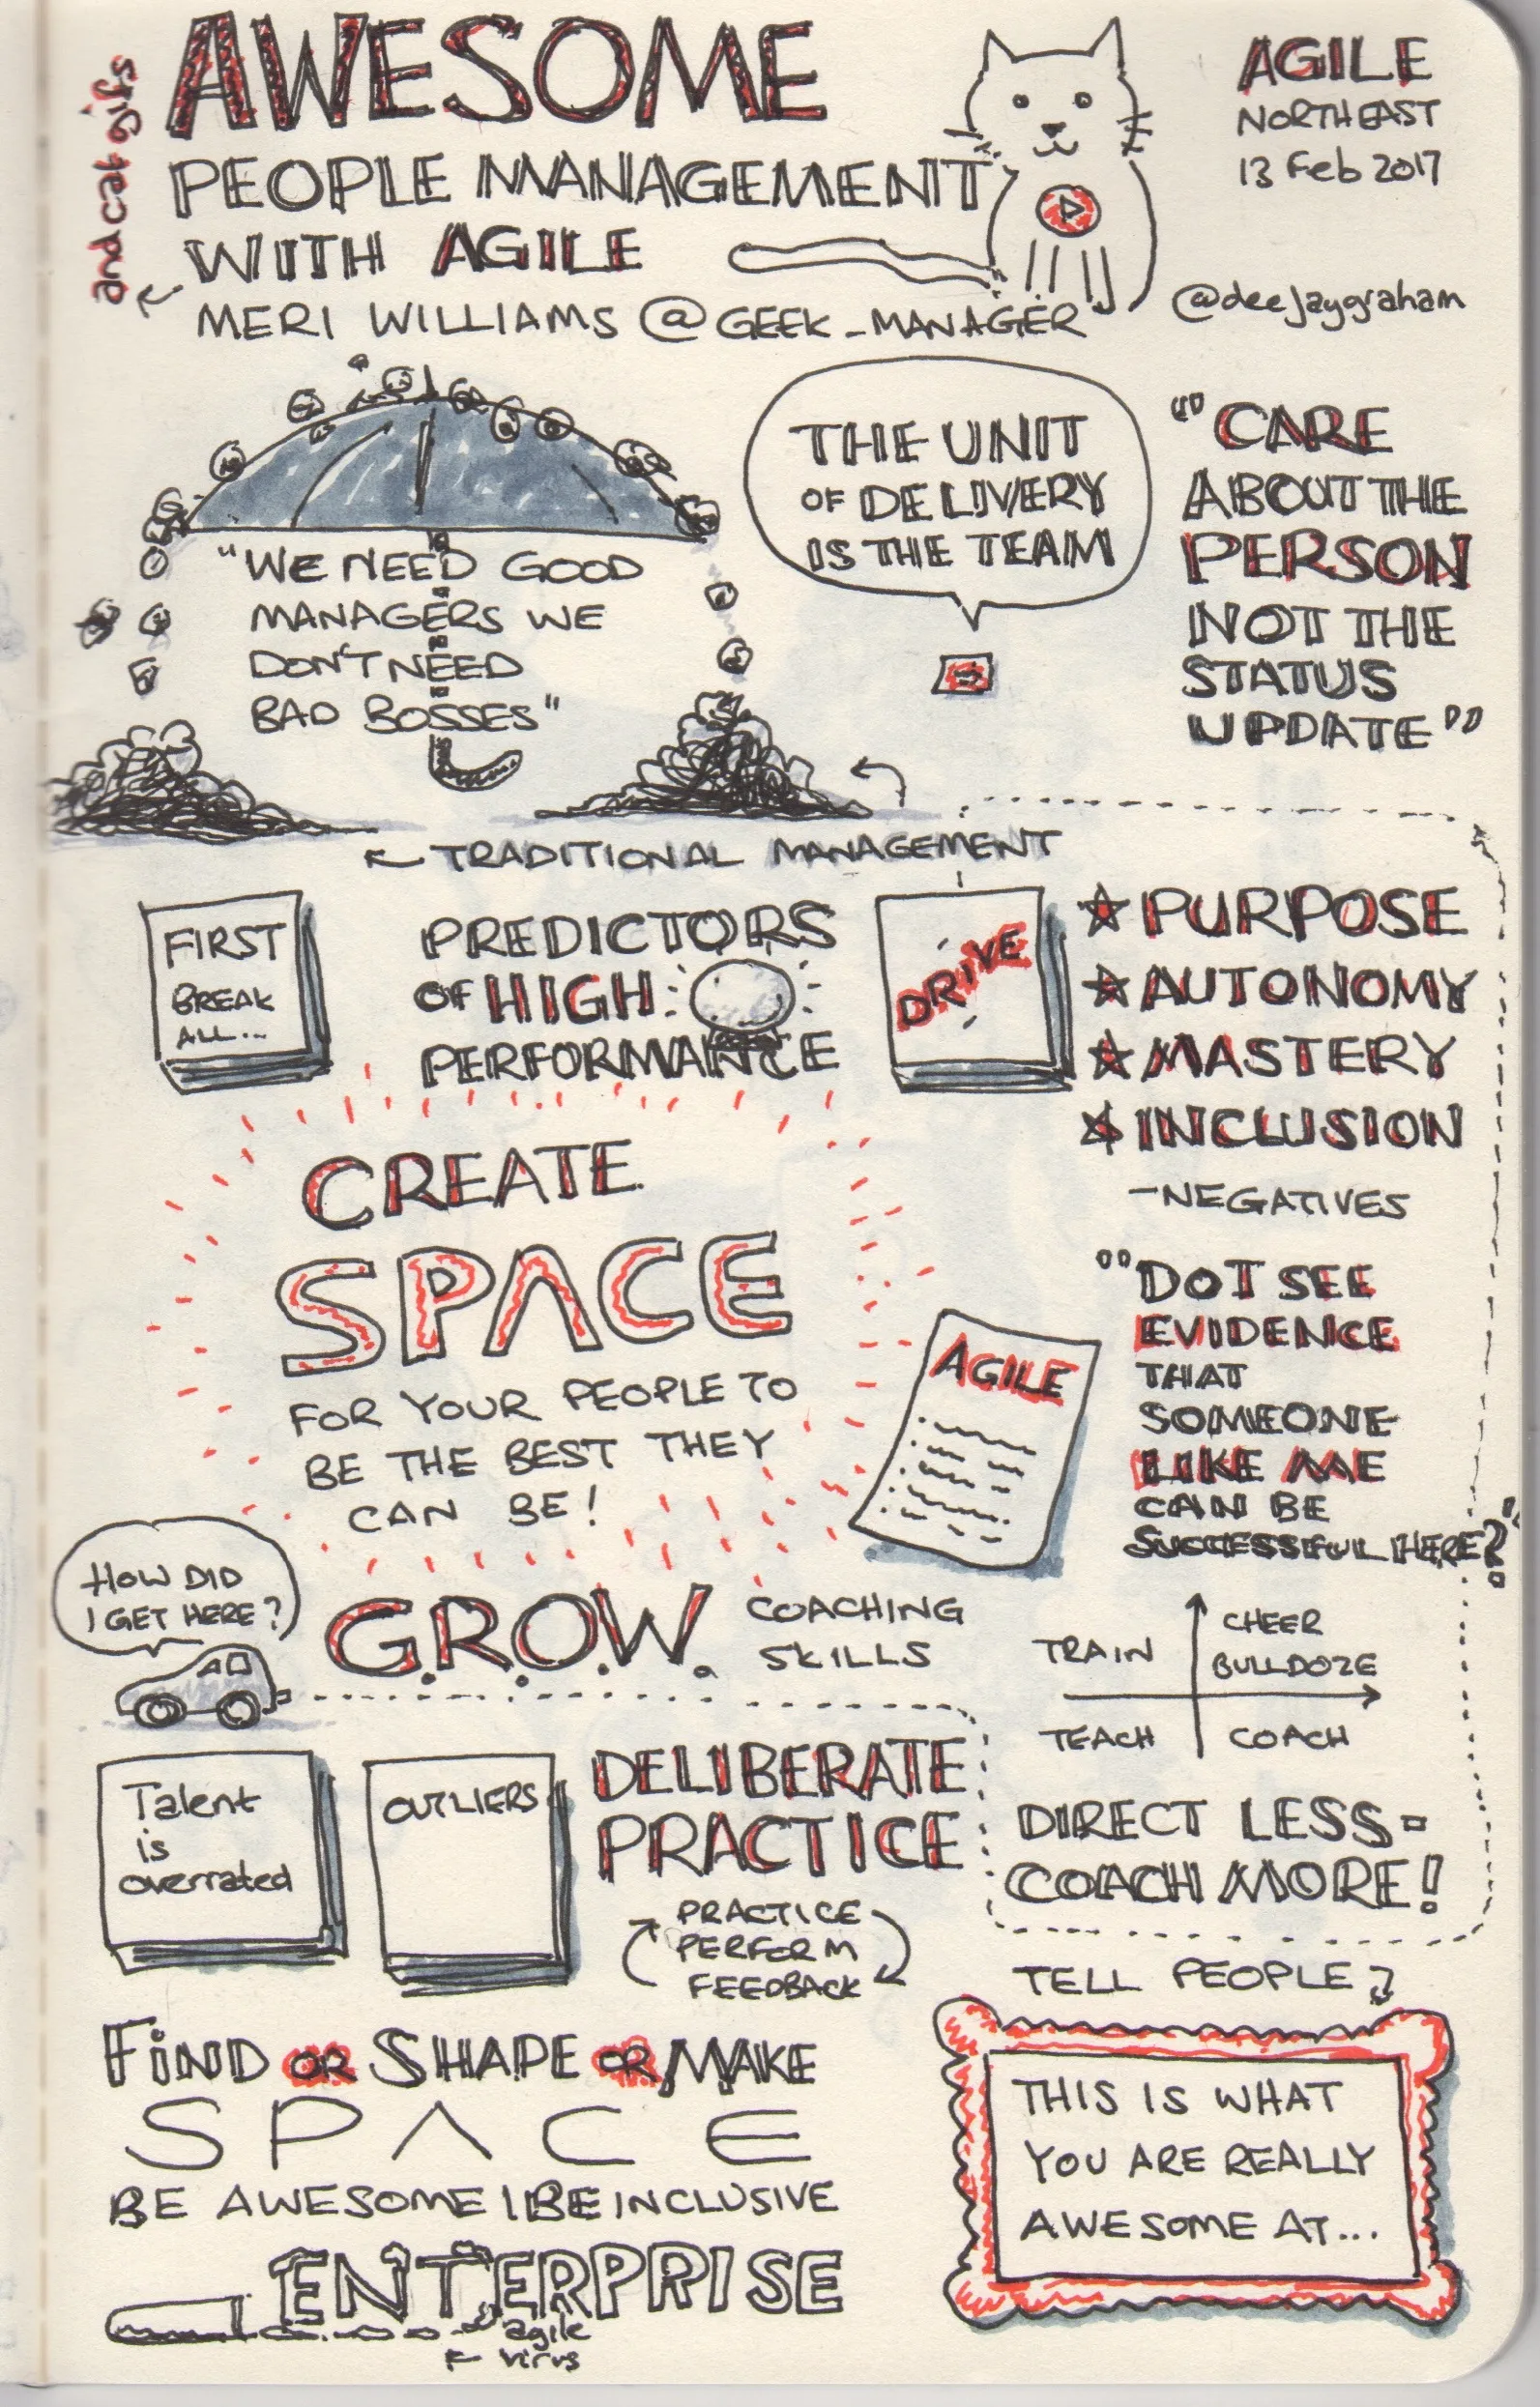 AWESOME
and cat gifs
PEOPLE MANAGEMENT
WITH AGILE
MERI WILLIAMS @GEEK_MANAGER
AGILE
NORTHEAST
13 Feb 2017
@deejaygraham
"WE NEED GOOD
MANAGERS WE
DON'T NEED
BAD BOSSES"
THE UNIT
OF DELIVERY
IS THE TEAM
"CARE
ABOUT THE
PERSON
NOT THE
STATUS
UPDATE"
TRADITIONAL MANAGEMENT
FIRST
BREAK
ALL...
PREDICTORS
OF HIGH
PERFORMANCE
DRIVE
PURPOSE
AUTONOMY
MASTERY
INCLUSION
-NEGATIVES
CREATE
SPACE
FOR YOUR PEOPLE TO
BE THE BEST THEY
CAN BE!
AGILE
"DO I SEE
EVIDENCE
THAT
SOMEONE
LIKE ME
CAN BE
SUCCESSFUL HERE?"
HOW DID
I GET HERE?
G.R.O.W.
COACHING
SKILLS
TRAIN
CHEER
BULLDOZE
TEACH
COACH
Talent
is
overrated
OUTLIERS
DELIBERATE
PRACTICE
PRACTICE
PERFORM
FEEDBACK
DIRECT LESS -
COACH MORE!
TELL PEOPLE
THIS IS WHAT
YOU ARE REALLY
AWESOME AT...
FIND OR SHAPE OR MAKE
SPACE
BE AWESOME | BE INCLUSIVE
ENTERPRISE
agile
virus